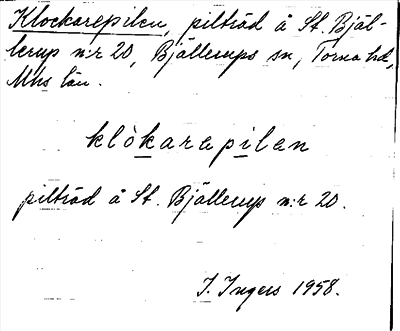 Klockarepilen, pilträd å St. Bjäl-
lerup n:r 20, Bjällerups sn, Torna hd,
Mhs län.
klòkarapilan
pilträd å St. Bjällerup n:r 20.
I. Ingers 1958.